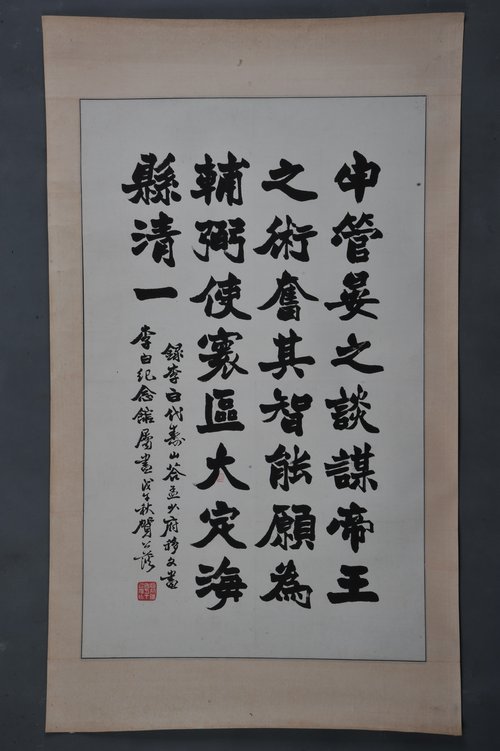 申管晏之談謀帝王
之術奮其智能願為
輔弼使寰區大定海
縣清一
録李白代壽山答孟少府移文畫
李白纪念館属畫戊午秋贺公符